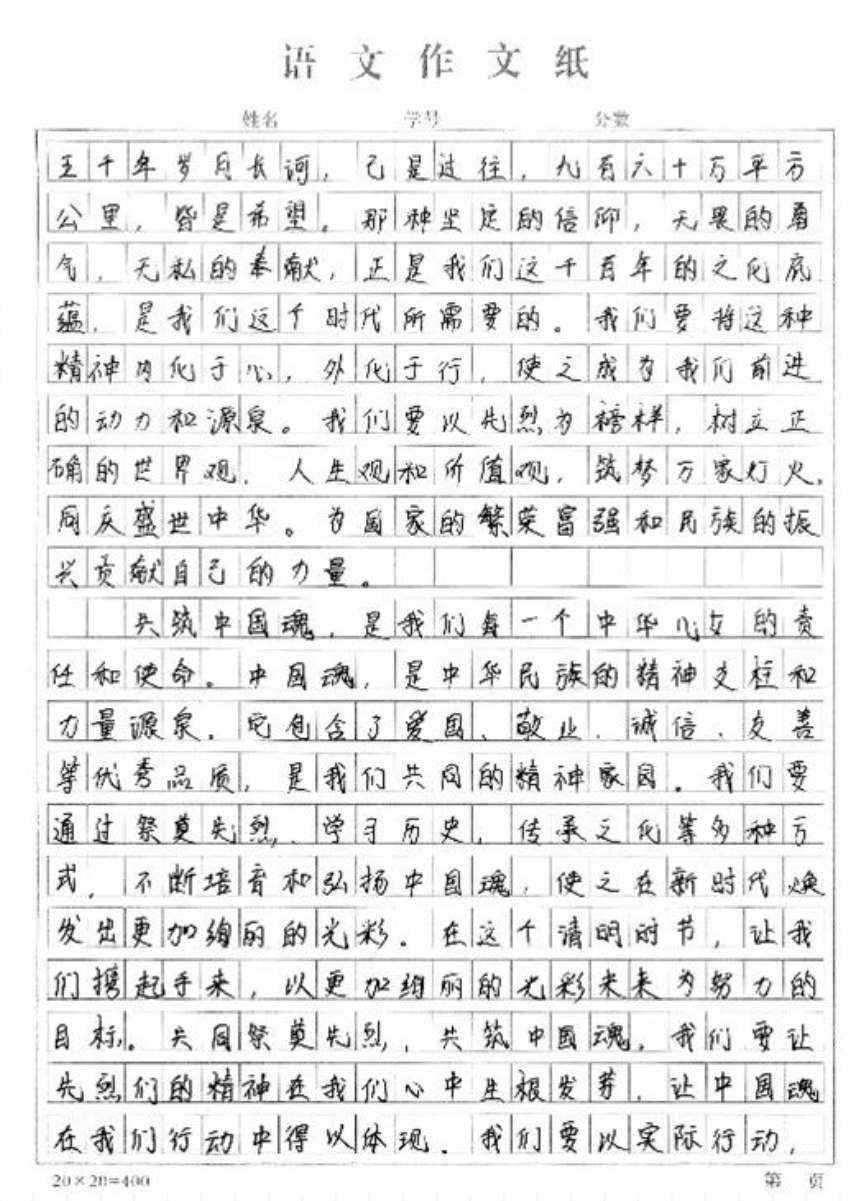 语文作文纸
姓名 学号 分数
五千年岁月长河，已是过往，九百六十万平方
公里，皆是希望。那种坚定的信仰，无畏的勇
气，无私的奉献，正是我们这千百年的文化底
蕴，是我们这个时代所需要的。我们要将这种
精神内化于心，外化于行，使之成为我们前进
的动力和源泉。我们要以先烈为榜样，树立正
确的世界观，人生观和价值观，筑梦万家灯火，
同庆盛世中华。为国家的繁荣富强和民族的振
兴贡献自己的力量。
共筑中国魂，是我们每一个中华儿女的责
任和使命。中国魂，是中华民族的精神支柱和
力量源泉。它包含了爱国、敬业、诚信、友善
等优秀品质，是我们共同的精神家园。我们要
通过祭奠先烈、学习历史，传承文化等多种方
式，不断培育和弘扬中国魂，使之在新时代焕
发出更加绚丽的光彩。在这个清明时节，让我
们携起手来，以更加绚丽的光彩未来为努力的
目标。共同祭奠先烈，共筑中国魂。我们要让
先烈们的精神在我们心中生根发芽，让中国魂
在我们行动中得以体现。我们要以实际行动，
20×20=400 第 页